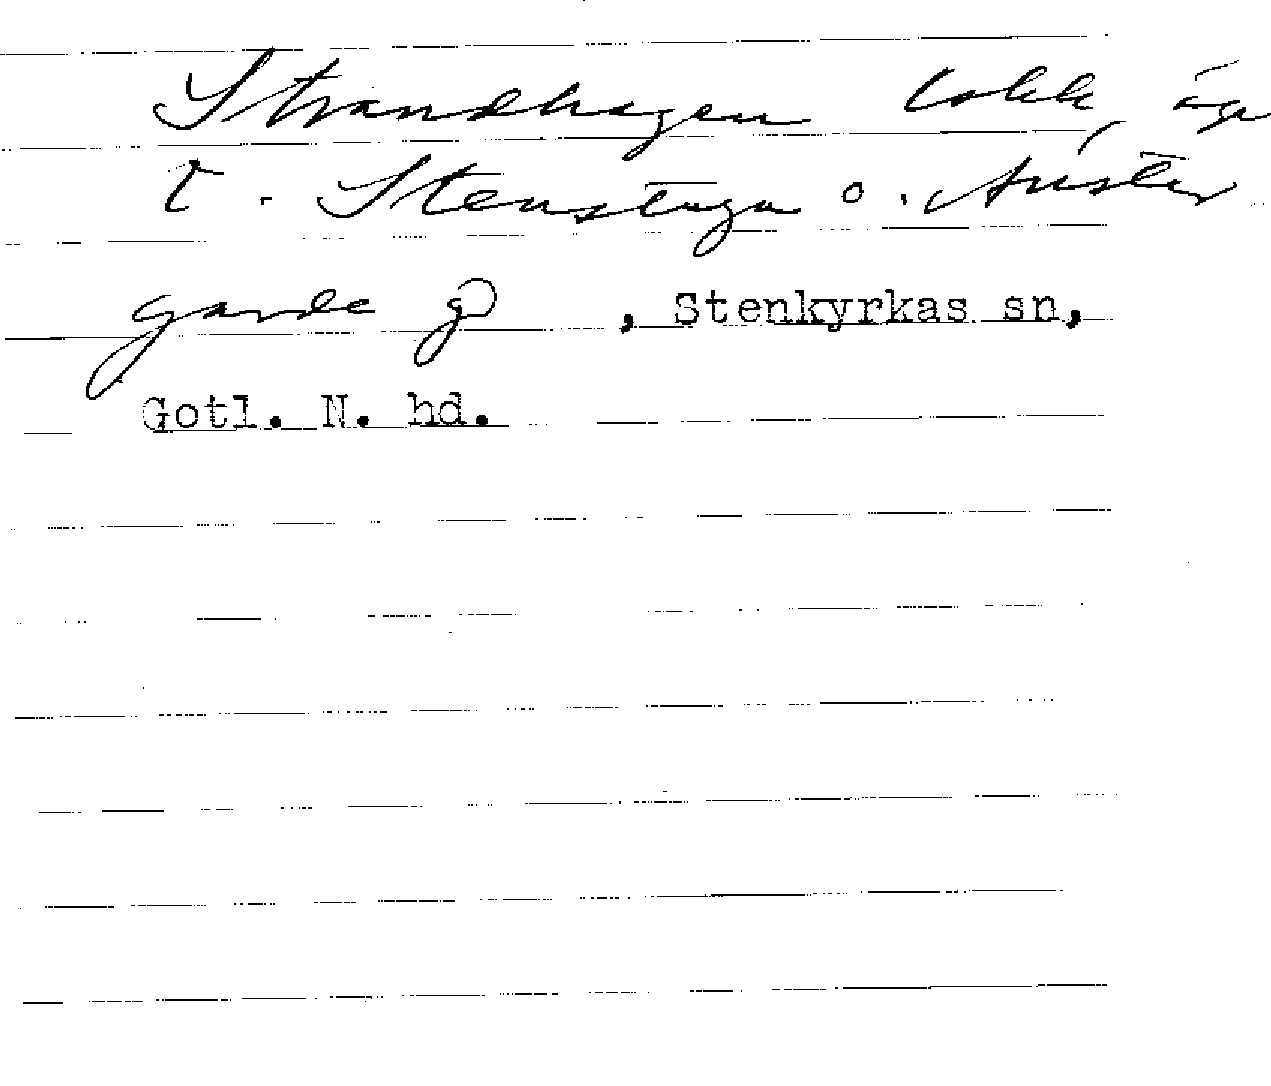 Strandhagen lokk, äga
t. Stenstuga o. Auster
garde g , Stenkyrkas sn,
Gotl. N. hd.